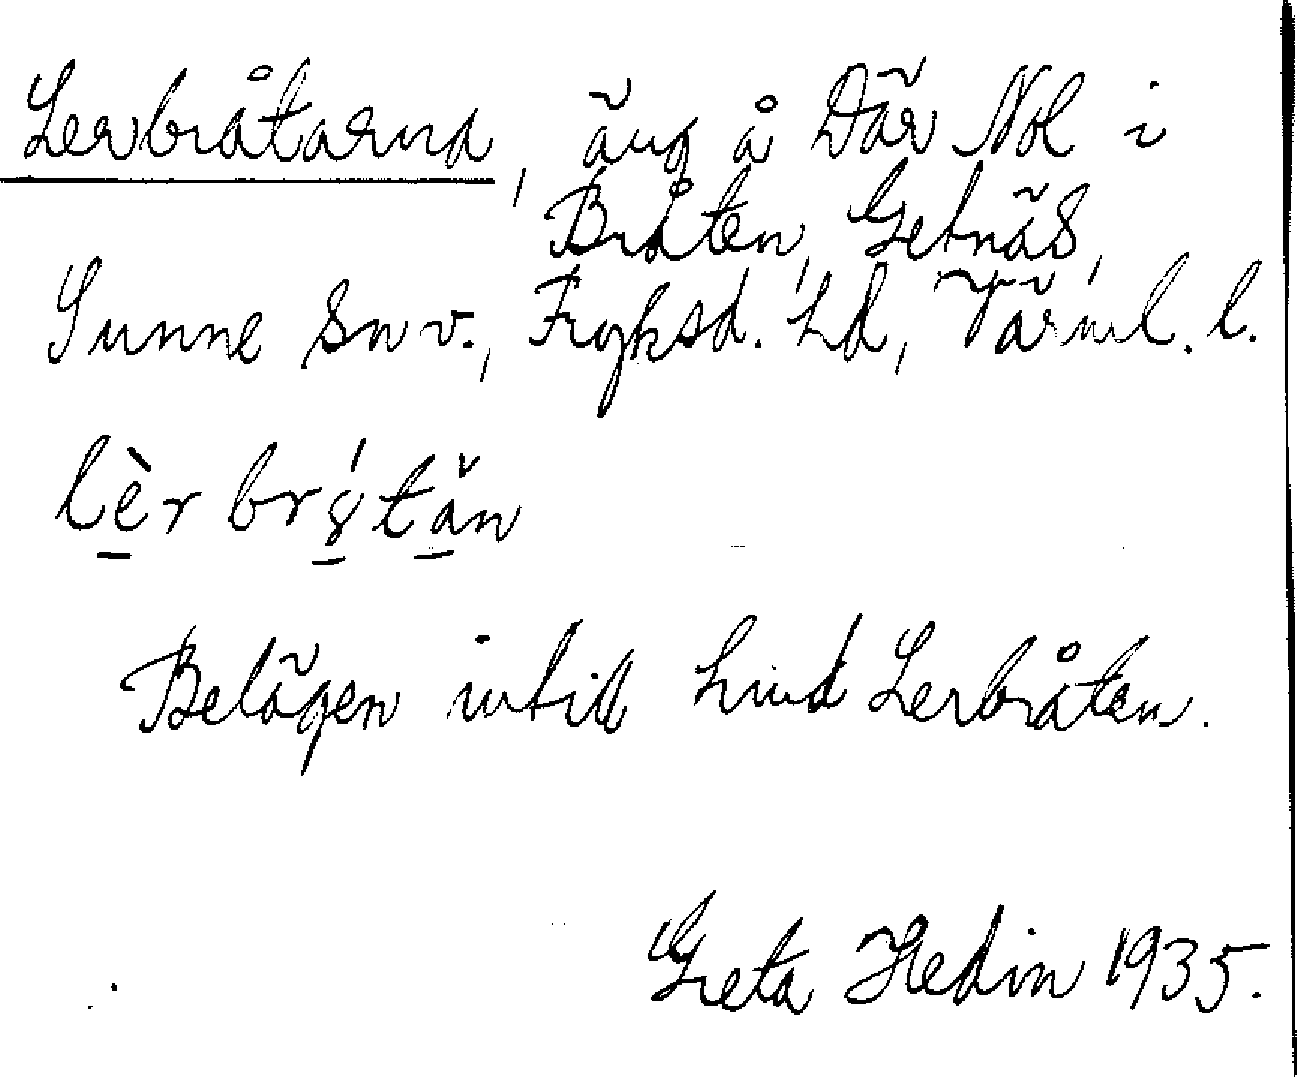 Lerbråtarna, äng å Där Nol i
Bråten, Getnäs,
Sunne sn v., Fryksd. hd, Värml. l.
lèrbrýtån
Belägen intill lind Lerbråten.
Greta Hedin 1935.